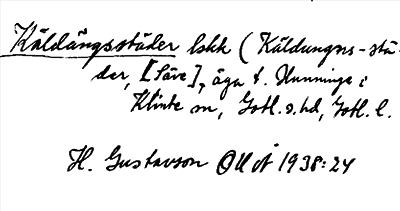 Käldängsstäder lskk (Käldungns-stä-
der, [Säve], äga t. Nunninge i
Klinte sn, Gotl. s. hd, Gotl. l.
H. Gustavson OUÅ 1938:24